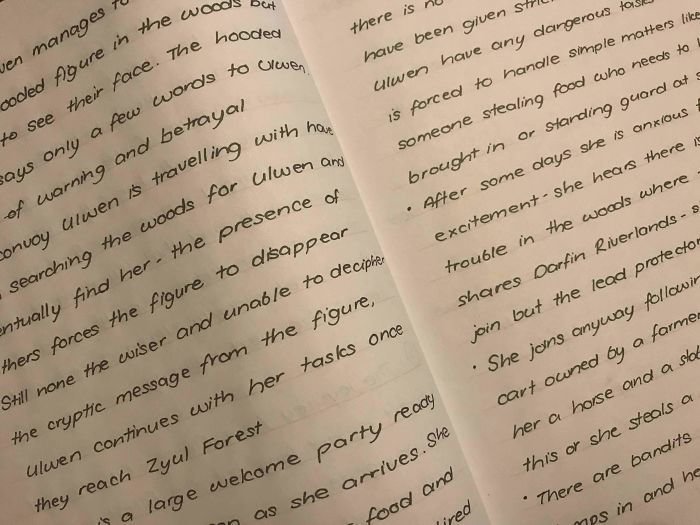 manages to
figure in the woods but
to see their face. The hooded
says only a few words to Ulwen
of warning and betrayal
convoy Ulwen is travelling with have
searching the woods for Ulwen and
find her - the presence of
forces the figure to disappear
Still none the wiser and unable to decipher
the cryptic message from the figure,
Ulwen continues with her tasks once
they reach Zyul Forest
a large welcome party ready
as she arrives. She
food and
there is no
have been given
Ulwen have any dangerous tasks
is forced to handle simple matters like
someone stealing food who needs to
brought in or standing guard at
• After some days she is anxious
excitement - she hears there is
trouble in the woods where
shares Darfin Riverlands -
join but the lead protector
• She joins anyway
cart owned by a farmer
her a horse and a
this or she steals a
• There are bandits
in and